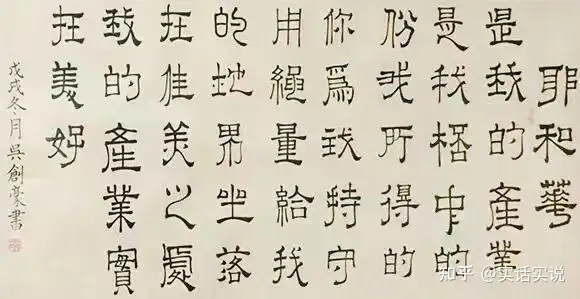 耶和華
是我的產業
是我桮中的
份我所得的
你爲我持守
用繩量給我
的地界坐落
在佳美之處
我的產業實
在美好
戊戌冬月吳創豪書
知乎 @实话实说